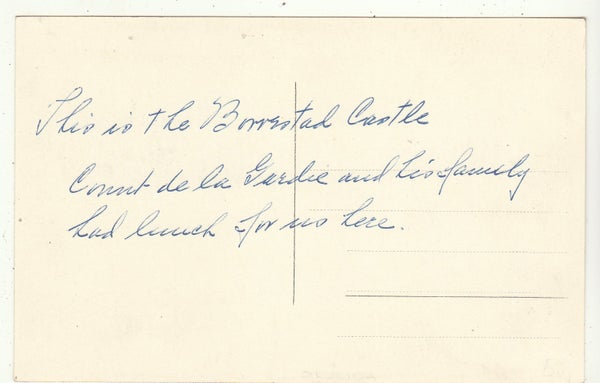 This is the Borrestad Castle
Count de la Gardie and his family
had lunch for us here.